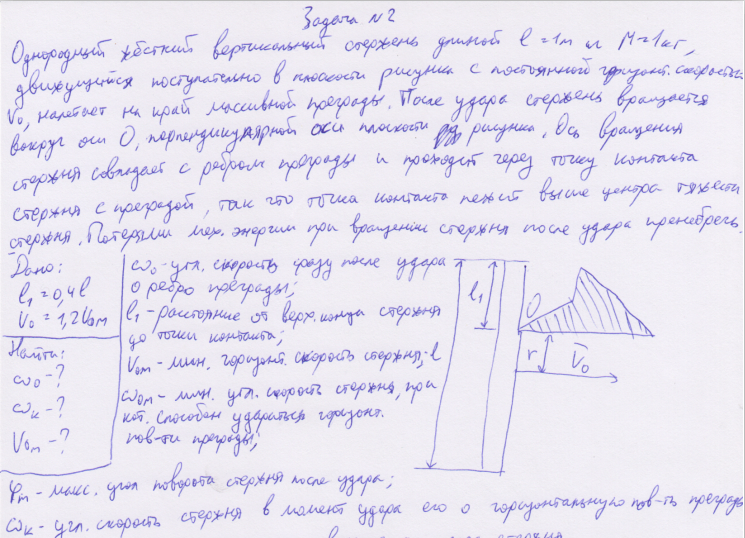 Задача №2
Однородный жёсткий вертикальный стержень длиной l = 1м и M = 1 кг,
движущийся поступательно в плоскости рисунка с постоянного горизонт. скоростью
V₀, налетает на край массивной преграды. После удара стержень вращается
вокруг оси O, перпендикулярной оси плоскости рисунка. Ось вращения
стержня совпадает с ребром преграды и проходит через точку контакта
стержня с преградой, так что точка контакта лежит выше центра тяжести
стержня. Потерями мех. энергии при вращении стержня после удара пренебречь.
Дано:
l₁ = 0,4l
V₀ = 1,2V₀м
Найти:
ω₀ - ?
ωк - ?
V₀м - ?
ω₀ - угл. скорость сразу после удара
о ребро преграды;
l₁ - расстояние от верх. конца стержня
до точки контакта;
V₀м - мин. горизонт. скорость стержня,
ω₀м - мин. угл. скорость стержня, при
кот. способен удариться горизонт.
пов-ти преграды;
l₁
O
r
V₀
φm - макс. угол поворота стержня после удара;
ωк - угл. скорость стержня в момент удара его о горизонтальную пов-ть преграды